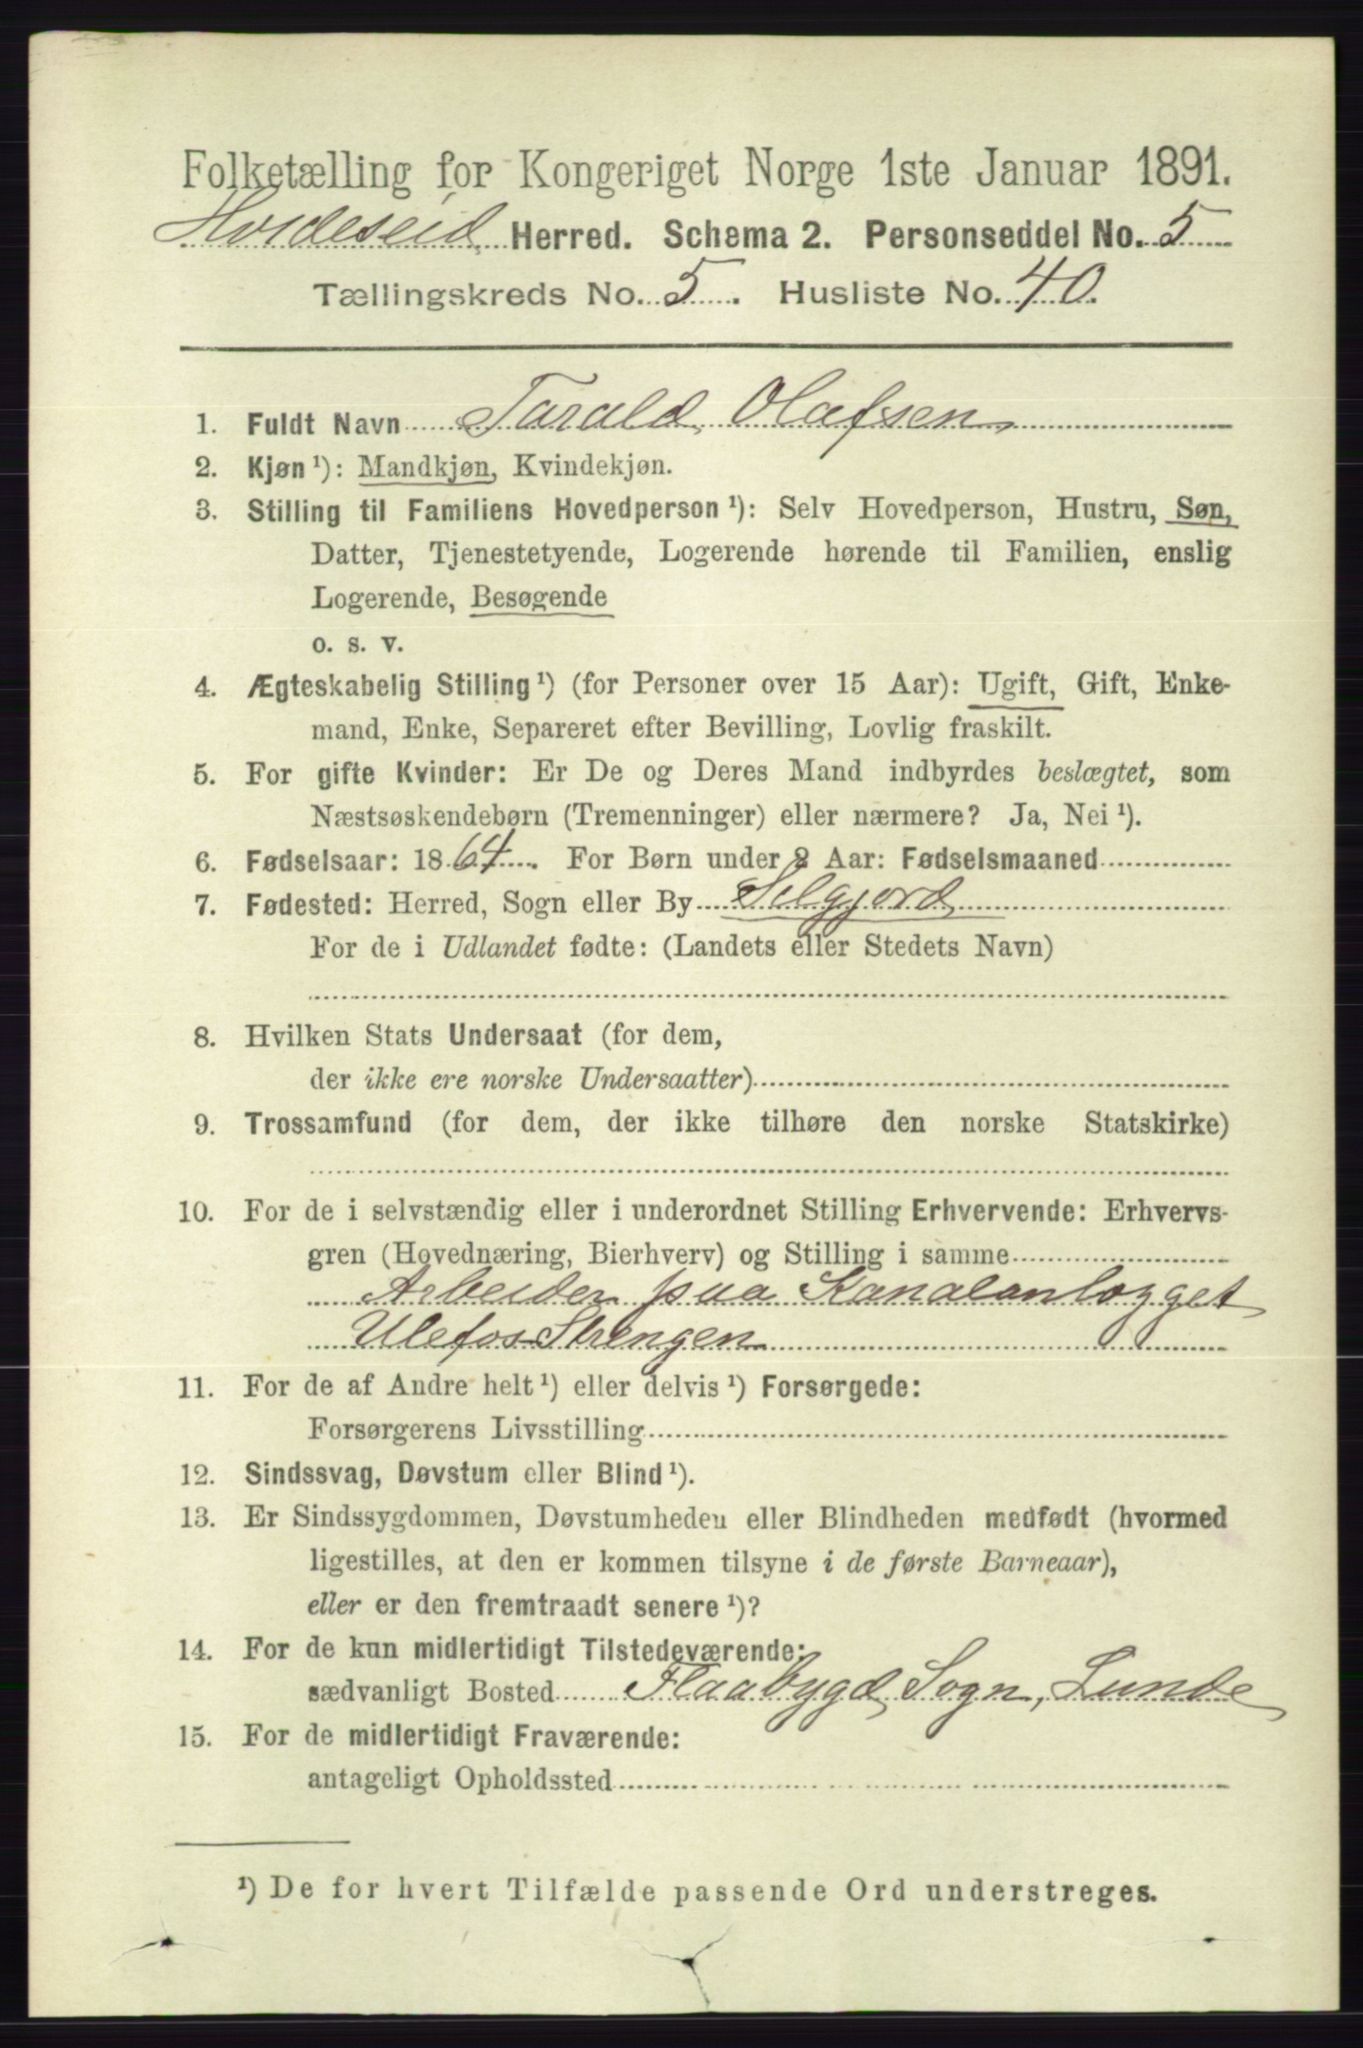 Folketælling for Kongeriget Norge 1ste Januar 1891.
Hvideseid Herred. Schema 2. Personseddel No. 5
Tællingskreds No. 5. Husliste No. 40.
1. Fuldt Navn Tarald Olafsen
2. Kjøn ¹): Mandkjøn, Kvindekjøn.
3. Stilling til Familiens Hovedperson ¹): Selv Hovedperson, Hustru, Søn,
Datter, Tjenestetyende, Logerende hørende til Familien, enslig
Logerende, Besøgende
o. s. v.
4. Ægteskabelig Stilling ¹) (for Personer over 15 Aar): Ugift, Gift, Enke-
mand, Enke, Separeret efter Bevilling, Lovlig fraskilt.
5. For gifte Kvinder: Er De og Deres Mand indbyrdes beslægtet, som
Næstsøskendebørn (Tremenninger) eller nærmere? Ja, Nei ¹).
6. Fødselsaar: 1864. For Børn under 2 Aar: Fødselsmaaned
7. Fødested: Herred, Sogn eller By Selgjord
For de i Udlandet fødte: (Landets eller Stedets Navn)
8. Hvilken Stats Undersaat (for dem,
der ikke ere norske Undersaatter)
9. Trossamfund (for dem, der ikke tilhøre den norske Statskirke)
10. For de i selvstændig eller i underordnet Stilling Erhvervende: Erhvervs-
gren (Hovednæring, Bierhverv) og Stilling i samme
Arbeider paa Kanalanlægget
Ulefos Strengen
11. For de af Andre helt ¹) eller delvis ¹) Forsørgede:
Forsørgerens Livsstilling
12. Sindssvag, Døvstum eller Blind ¹).
13. Er Sindssygdommen, Døvstumheden eller Blindheden medfødt (hvormed
ligestilles, at den er kommen tilsyne i de første Barneaar),
eller er den fremtraadt senere ¹)?
14. For de kun midlertidigt Tilstedeværende:
sædvanligt Bosted Flaabygd Sogn, Lunde
15. For de midlertidigt Fraværende:
antageligt Opholdssted
¹) De for hvert Tilfælde passende Ord understreges.